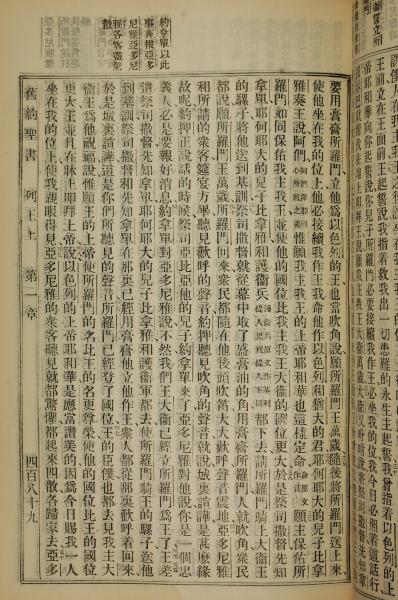 約拿單以此
事奔報亞多
尼雅亞多尼
雅各客盡駭
散
要用膏膏所羅門立他爲以色列的王也當吹角說願所羅門王萬歲隨後將所羅門送上來
使他坐在我的位上他必接續我作王我命他作以色列和猶大的君耶何耶大的兒子比拿
雅奏王說阿們惟願我主我王的上帝耶和華也這樣定命願主保佑所
羅門如同保佑我主我王並使他的國位比我主我王大衛的國位更大於是祭司撒督先知
拿單耶何耶大的兒子比拿雅和護衛兵護衛兵原文作基利提人比利提人都下去請所羅門騎上大衛王
的騾子將他送到基訓祭司撒督就從幕中取了盛膏油的角用膏膏所羅門人就吹角衆民
都說願所羅門王萬歲所羅門回來衆民都隨在他後頭吹笛大大歡呼聲音震地亞多尼雅
和所請的衆客筵宴方畢聽見歡呼的聲音約押聽見吹角的聲音就說城裏諠譁是甚麽緣
故呢約押正說話的時候祭司亞比亞他的兒子約拿單來了亞多尼雅對他說你是一個忠
義人必是要報好消息約拿單對亞多尼雅說不然我們主大衛已經立所羅門作了王了王差
遣祭司撒督先知拿單耶何耶大的兒子比拿雅和護衛軍都去使所羅門騎王的騾子送他
到基訓祭司撒督和先知拿單在那裏已經用膏膏他立他作王衆人都從那裏歡呼着回來
於是城裏諠譁這是你們所聽見的聲音所羅門已經登了國位王的臣僕也都去見我主大
衛王爲他祝謳說惟願王的上帝使所羅門的名比王的名更尊榮使他的國位比王的國位
更大王並且在牀上叩拜上帝說以色列的上帝耶和華是應當讚美的因爲今日賜我一人
坐在我的位上使我親眼得見亞多尼雅的衆客聽見就都驚懼都起來四散各歸家去亞多
舊約聖書 列王上 第一章 四百八十九